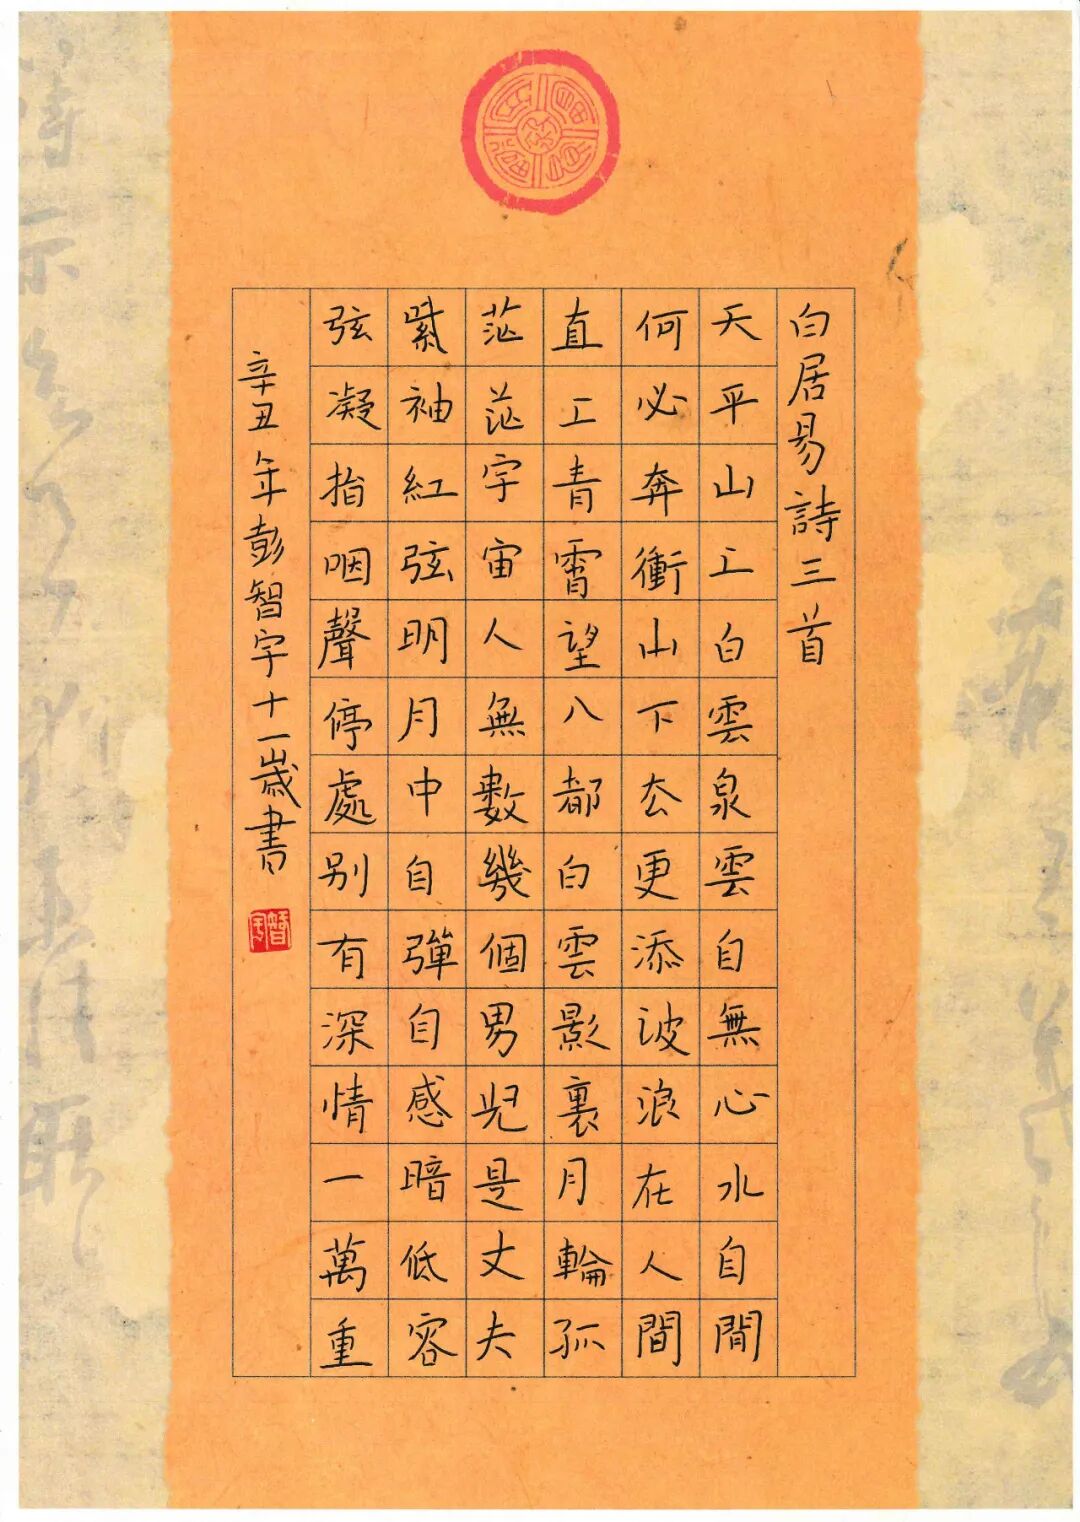 白居易詩三首
天平山上白雲泉雲自無心水自閒
何必奔衝山下去更添波浪在人間
直上青霄望八都白雲影裏月輪孤
茫茫宇宙人無數幾個男兒是丈夫
紫袖紅弦明月中自彈自感暗低容
弦凝指咽聲停處别有深情一萬重
辛丑年彭智宇十一歲書
智宇